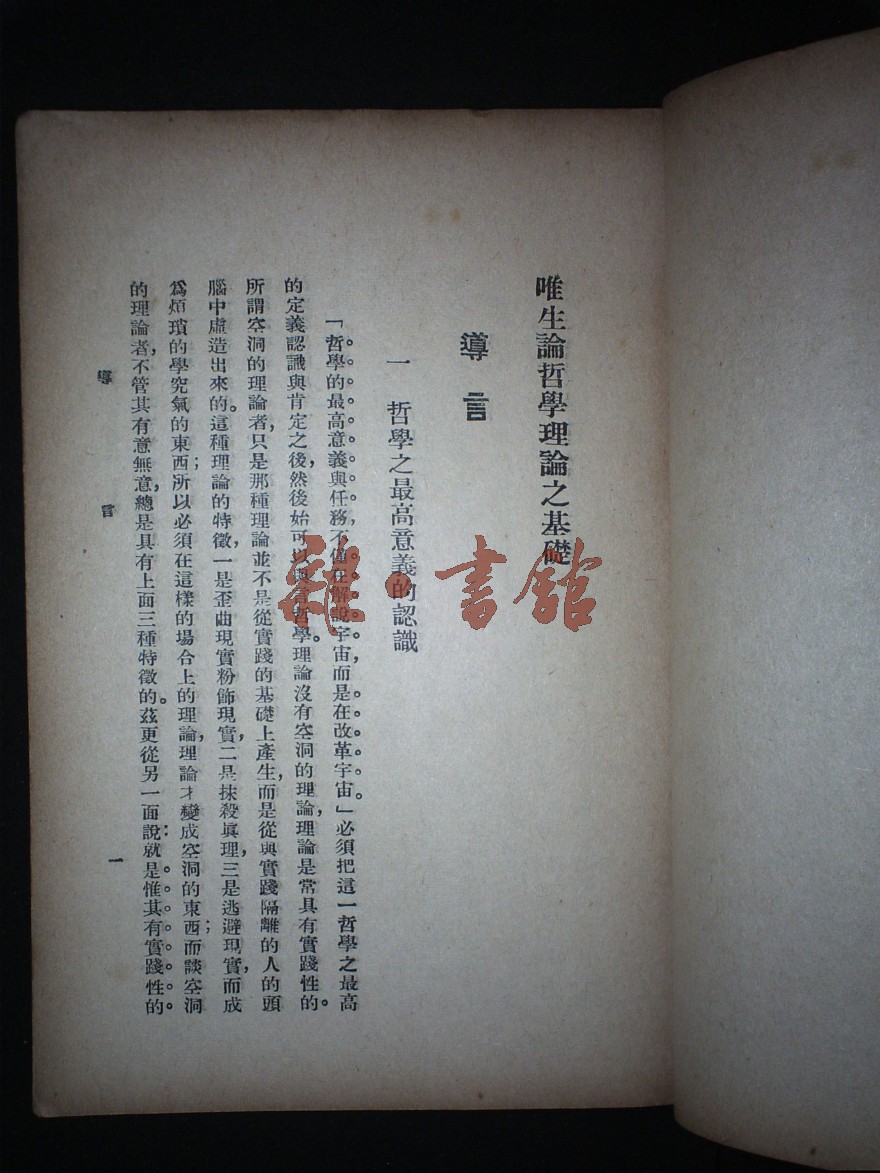 唯生論哲學理論之基礎
導言
一 哲學之最高意義的認識
「哲學的最高意義與任務,不僅在解說宇宙,而是在改革宇宙。」必須把這一哲學之最高
的定義認識與肯定之後,然後始可以與言哲學。理論沒有空洞的理論,理論是常具有實踐性的。
所謂空洞的理論者,只是那種理論並不是從實踐的基礎上產生,而是從與實踐隔離的人的頭
腦中虛造出來的。這種理論的特徵,一是歪曲現實粉飾現實,二是抹殺眞理,三是逃避現實,而成
爲煩瑣的學究氣的東西;所以必須在這樣的場合上的理論,理論才變成空洞的東西;而談空洞
的理論者,不管其有意無意,總是具有上面三種特徵的。茲更從另一面說:就是惟其有實踐性的
導言
一
雜·書館